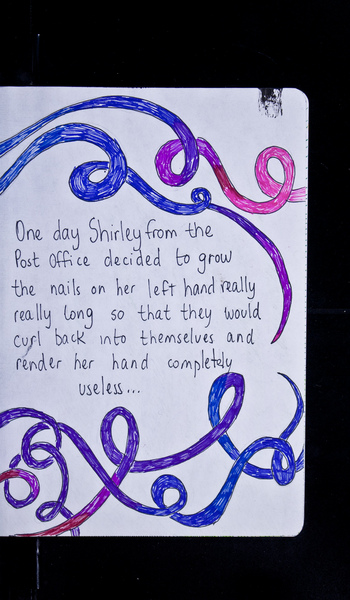 One day Shirley from the
Post Office decided to grow
the nails on her left hand really
really long so that they would
curl back into themselves and
render her hand completely
useless...